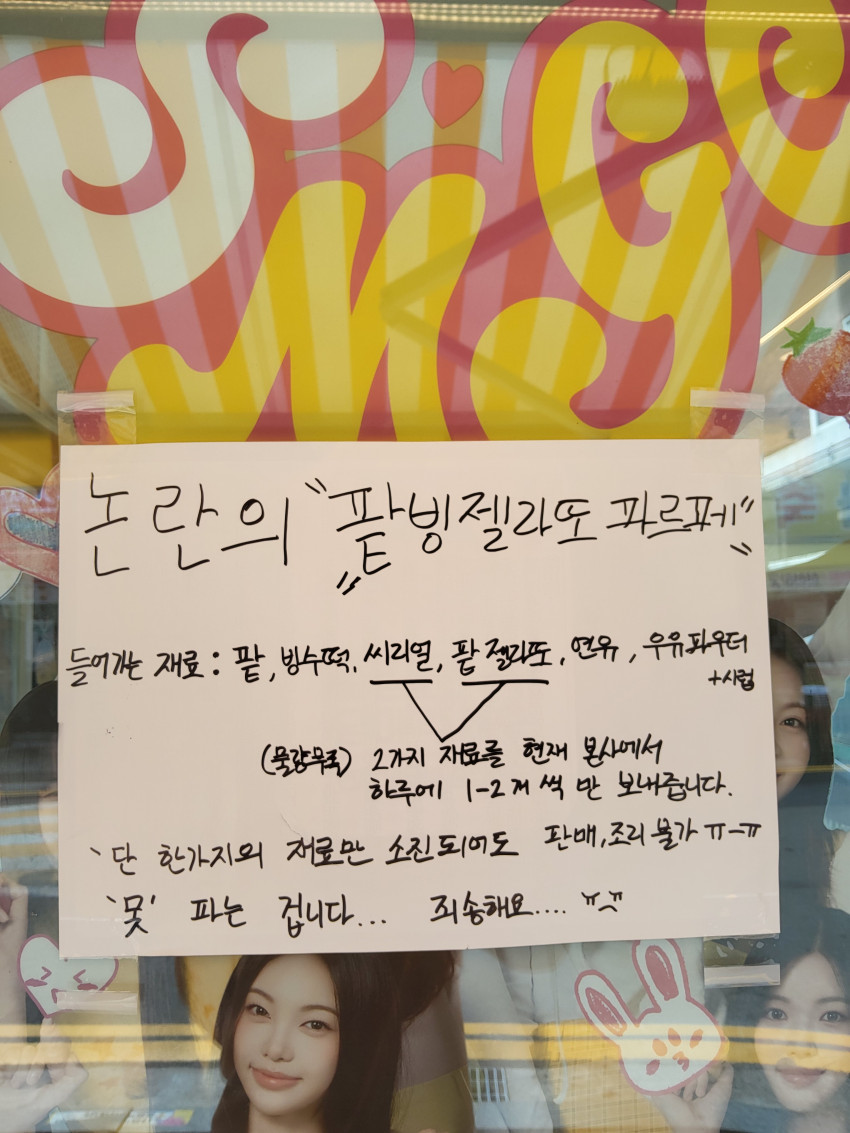 SMGC
논란의 "팥빙젤라또 파르페"
들어가는 재료 : 팥, 빙수떡, 씨리얼, 팥 젤라또, 연유, 우유파우더
+시럽
(물량부족) 2가지 재료를 현재 본사에서
하루에 1-2개 씩 만 보내줍니다.
`단 한가지의 재료만 소진되어도 판매,조리 불가 ㅠ-ㅠ
'못' 파는 겁니다... 죄송해요.... ㅠ_ㅠ